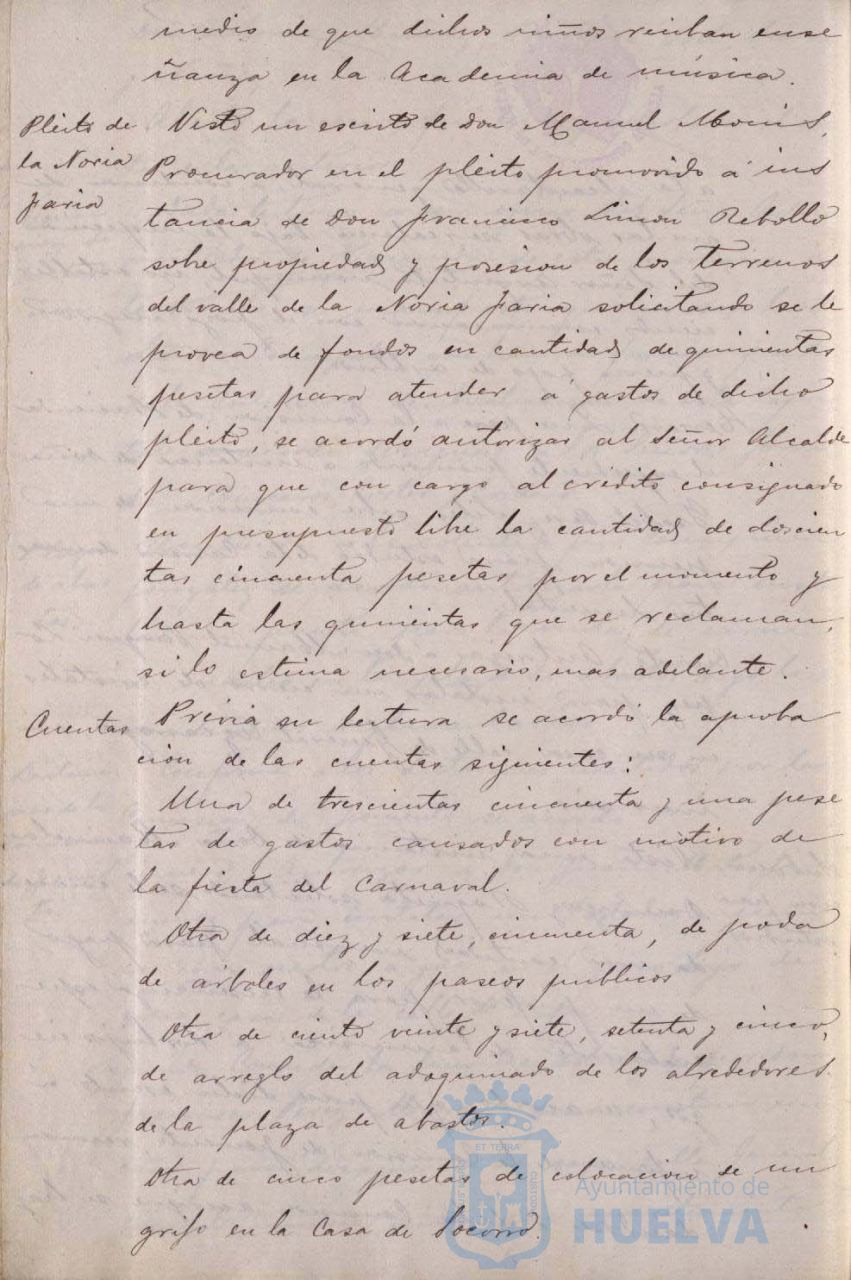 medio de que dichos niños reciban ense
ñanza en la Academia de música.
Pleito de
la Noria
Faria
Visto un escrito de Don Manuel Monis,
Procurador en el pleito promovido á ins
tancia de Don Francisco Limon Rebollo
sobre propiedad y posesion de los terrenos
del valle de la Noria Faria solicitando se le
provea de fondos en cantidad de quinientas
pesetas para atender á gastos de dicho
pleito, se acordó autorizar al Señor Alcalde
para que con cargo al crédito consignado
en presupuesto libre la cantidad de doscien
tas cincuenta pesetas por el momento y
hasta las quinientas que se reclaman,
si lo estima necesario, mas adelante.
Cuentas
Prévia su lectura se acordó la aproba
cion de las cuentas siguientes:
Una de trescientas cincuenta y una pese
tas de gastos causados con motivo de
la fiesta del Carnaval.
Otra de diez y siete, cincuenta, de poda
de árboles en los paseos públicos
Otra de ciento veinte y siete, setenta y cinco,
de arreglo del adoquinado de los alrededores
de la plaza de abastos.
Otra de cinco pesetas de colocacion de un
grifo en la Casa de Socorro.
Ayuntamiento de
HUELVA